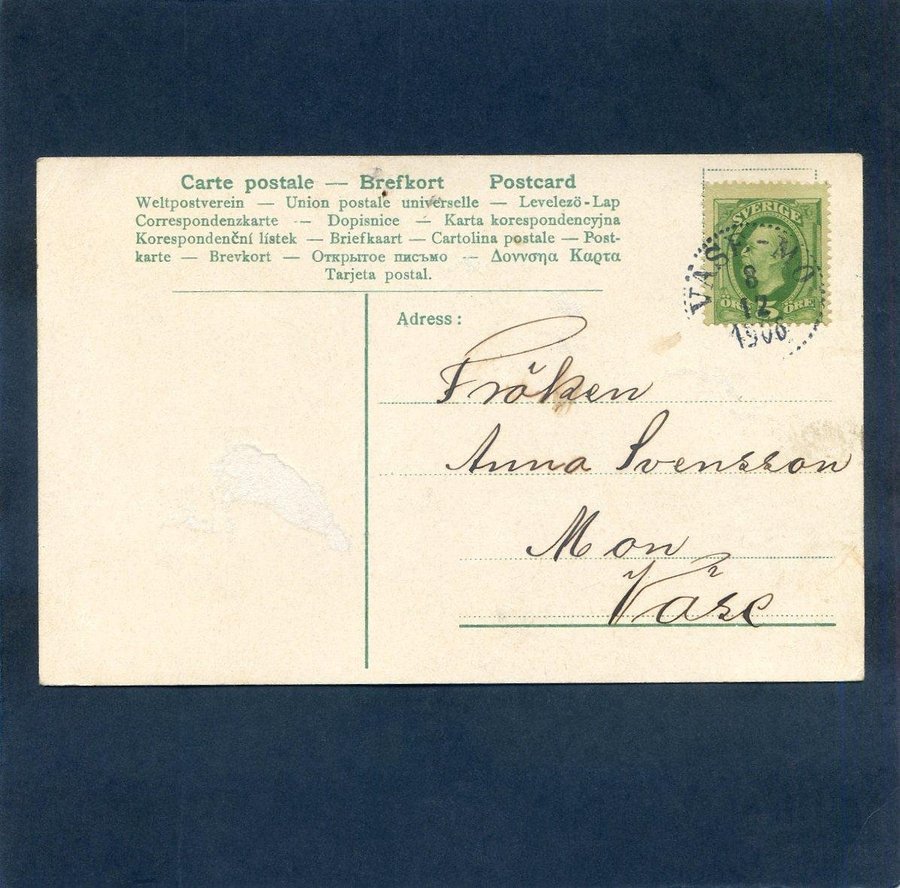 Carte postale — Brefkort Postcard
Weltpostverein — Union postale universelle — Levelező-Lap
Correspondenzkarte — Dopisnice — Karta korespondencyjna
Korespondenční lístek — Briefkaart — Cartolina postale — Post-
karte — Brevkort — Открытое письмо — Δοννσηα Καρτα
Tarjeta postal.
SVERIGE
ÖRE 5 ÖRE
VÄSE-MO
8
12
1906
Adress:
Fröken
Anna Svensson
Mon
Väse